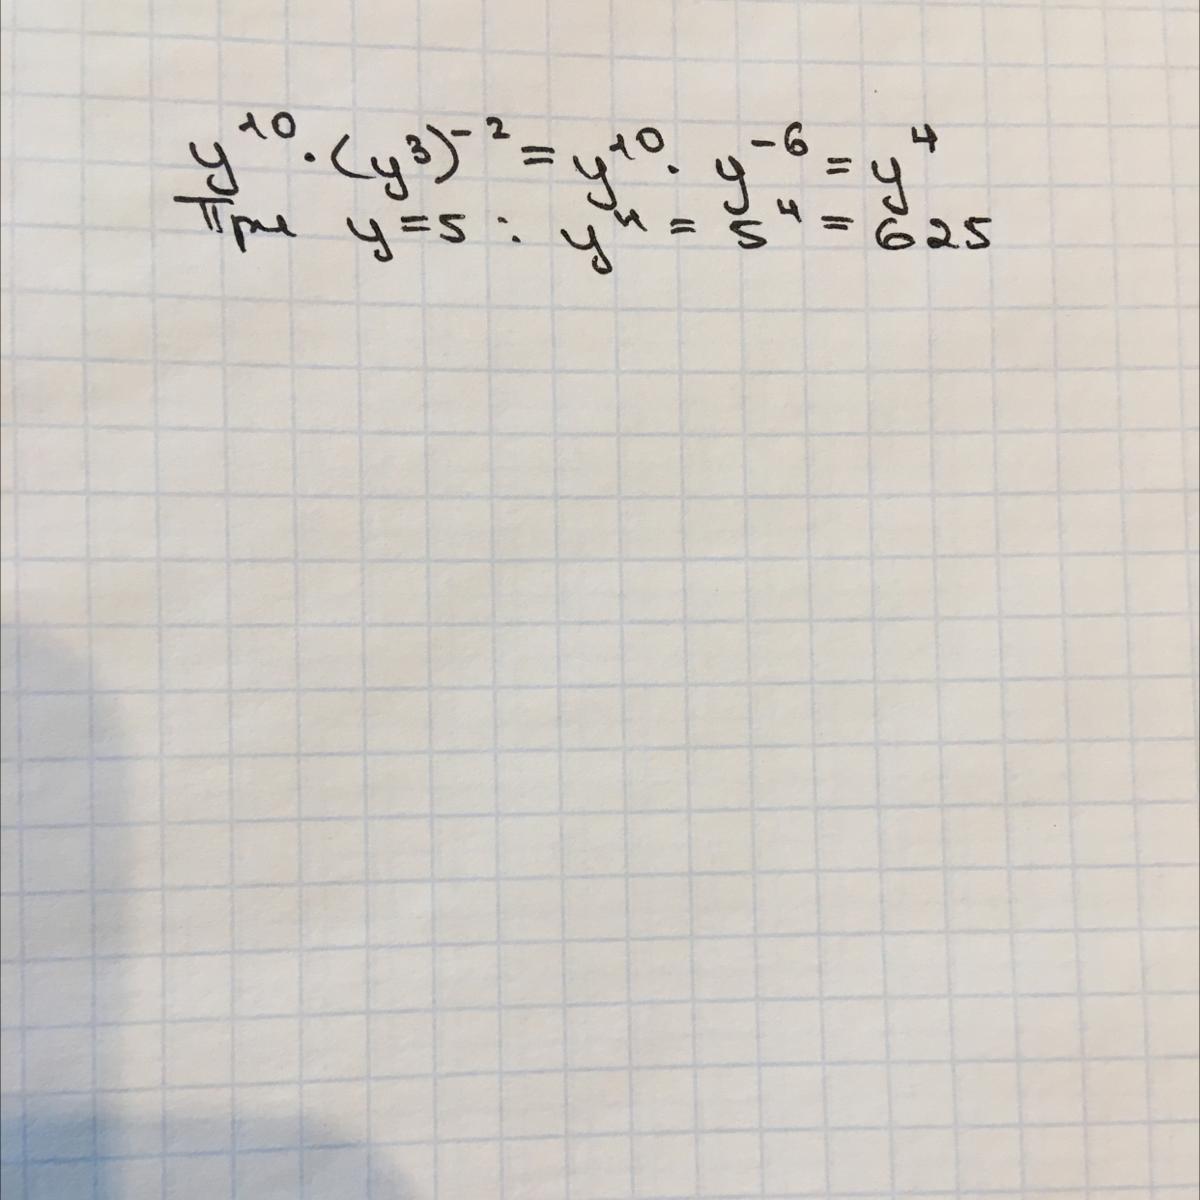 y¹⁰·(y³)⁻² = y¹⁰· y⁻⁶ = y⁴
При y=5 : y⁴ = 5⁴ = 625